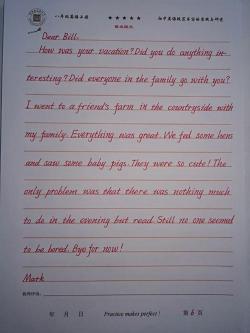 ★★★★★
Dear Bill,
How was your vacation? Did you do anything in-
teresting? Did everyone in the family go with you?
I went to a friend's farm in the countryside with
my family. Everything was great. We fed some hens
and saw some baby pigs. They were so cute! The
only problem was that there was nothing much
to do in the evening but read. Still no one seemed
to be bored. Bye for now!
Mark
年 月 日 Practice makes perfect! 第 6 页